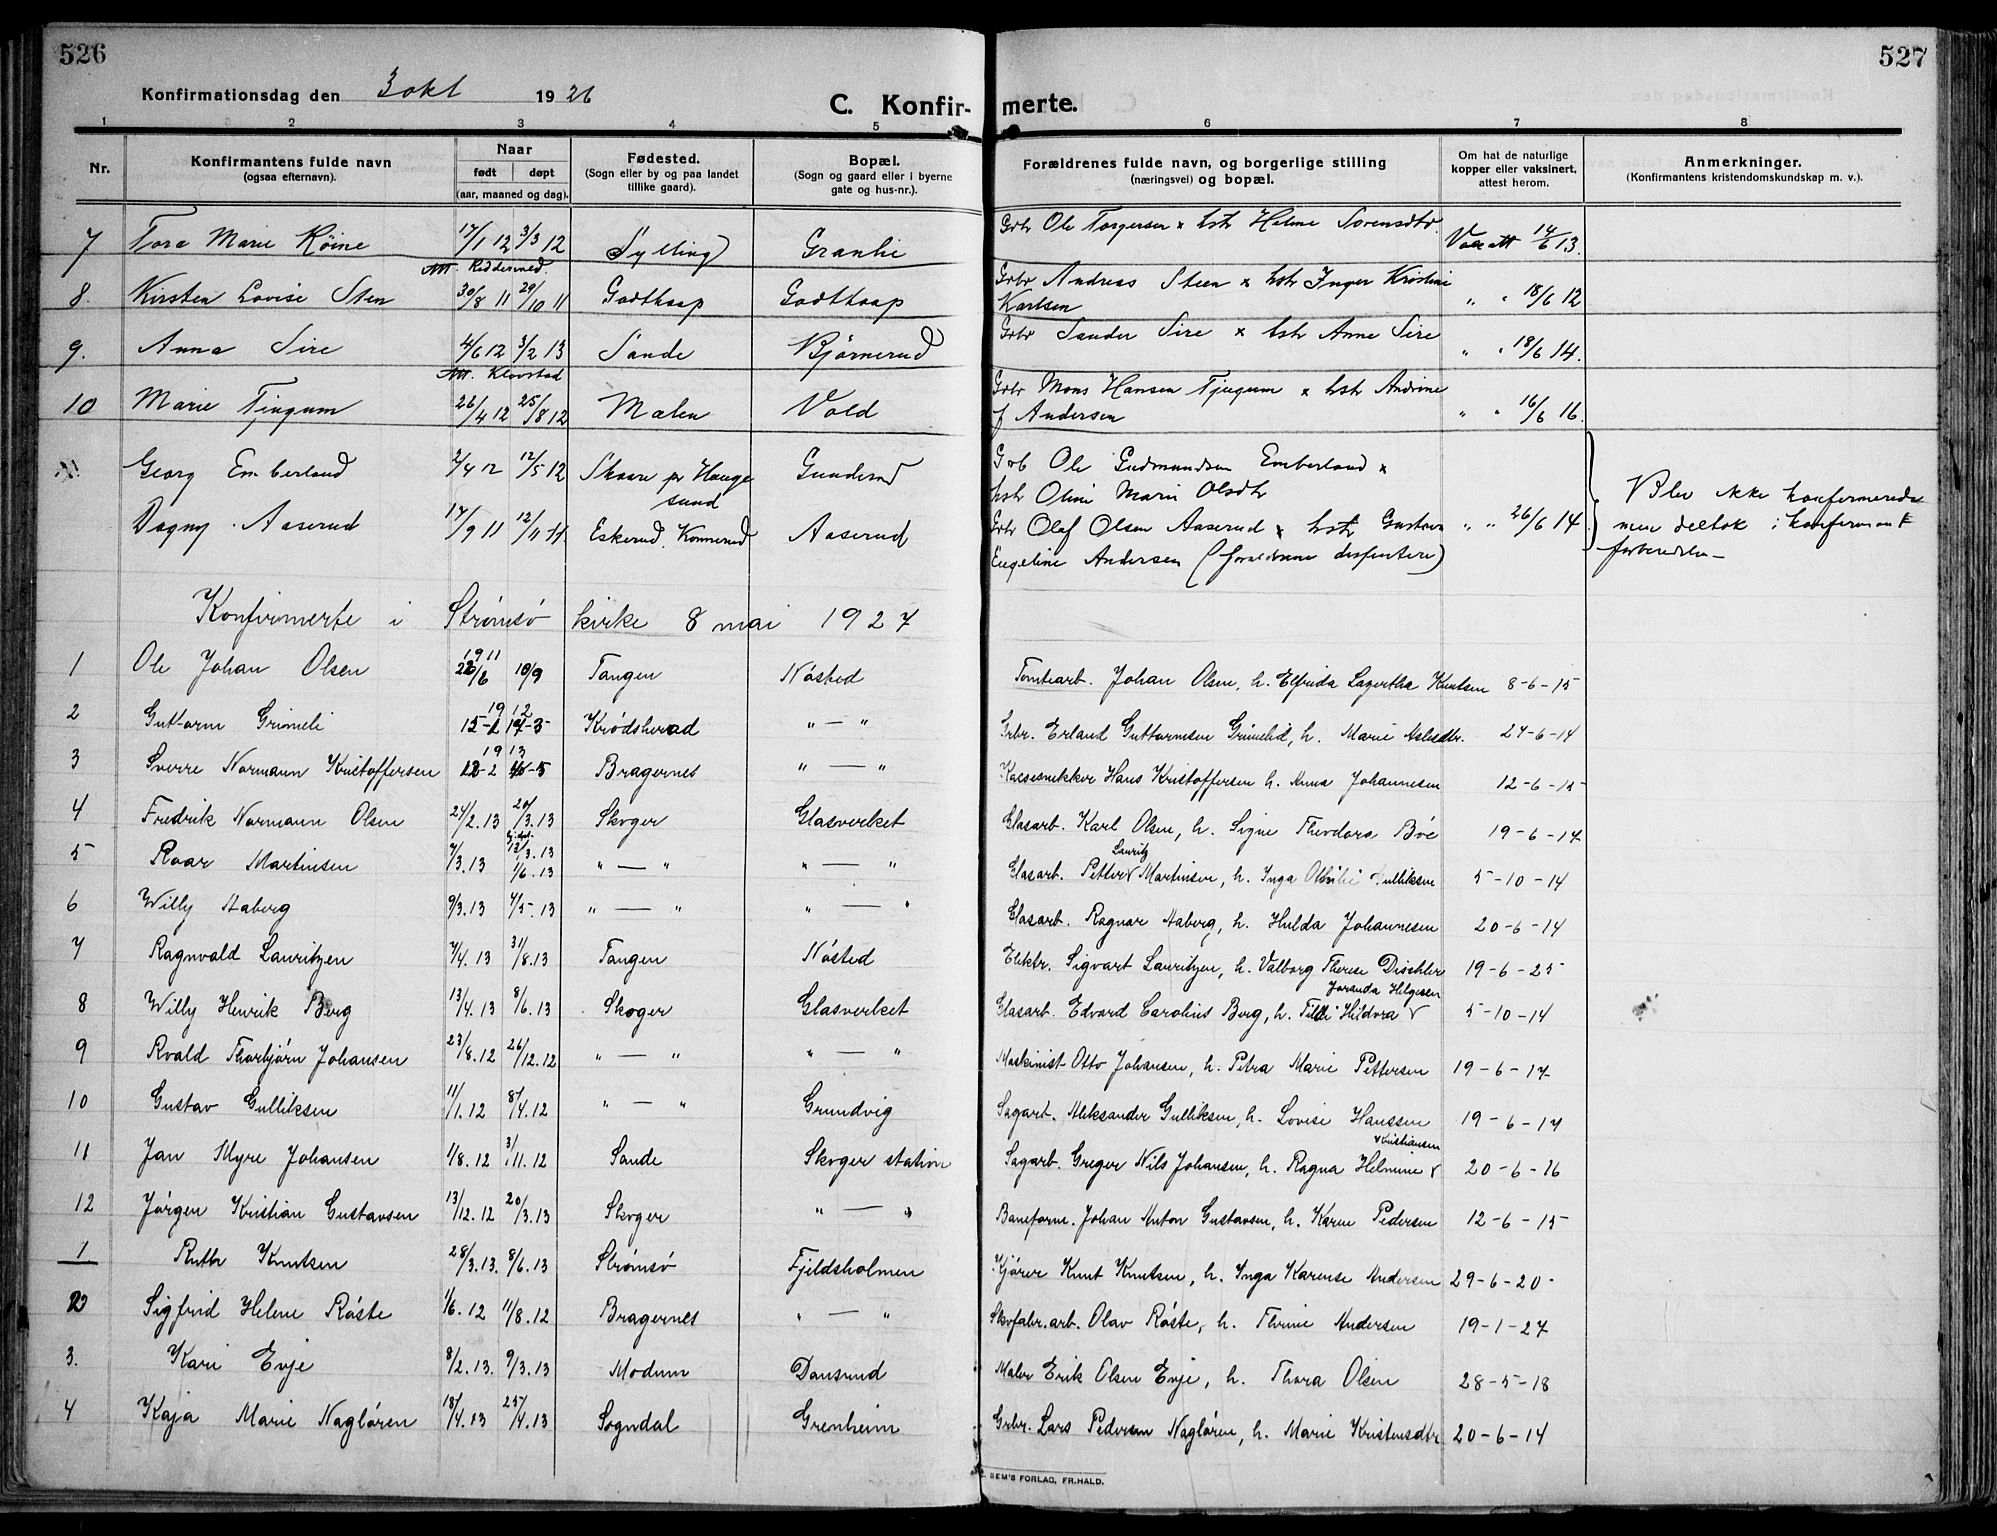 526
527
Konfirmationsdag den 3 okt 1926
C. Konfir- merte.
1 2 3 4 5 6 7 8
Nr. Konfirmantens fulde navn (ogsaa efternavn). Naar født døpt (aar, maaned og dag). Fødested. (Sogn eller by og paa landet tillike gaard). Bopæl. (Sogn og gaard eller i byerne gate og hus-nr.). Forældrenes fulde navn, og borgerlige stilling (næringsvei) og bopæl. Om hat de naturlige kopper eller vaksinert, attest herom. Anmerkninger. (Konfirmantens kristendomskundskap m. v.).
7 Tora Marie Röine 17/1 12 3/3 12 Sylling Granlie Grbr Ole Torgersen x hstr Helene Sorensdtr. Vac att 14/6 13.
Att. Reddersned.
8. Kirsten Lovise Sten 30/8 11 29/10 11 Godthaap Godthaap Grbr Andreas Steen x hstr Inger Kristine
Karlsen " " 18/6 12
9. Anna Sire 4/6 12 3/2 13 Sande Bjørnerud Grbr Sander Sire x hstr Anne Sire " " 18/6 14.
Att. Klovstad
10 Marie Tjugum 26/4 12 25/8 12 Mælen Vold Grbr Mons Hansen Tjugum x hstr Andrine
f Andersen " " 16/6 16.
Georg Emberland 2/4 12 12/5 12 Skaare pr Hauge
sund Gunderud Grb Ole Gudmundsen Emberland x
hstr Oline Marie Olsdtr
Dagny Aaserud 17/9 11 12/11 11. Eskerud, Konnerud Aaserud Grbr Olaf Olsen Aaserud x hstr Gustava " " 26/6 14
Engeline Andersen (forældrene dissentere)
Blev ikke konfirmerede
men deltok i konfirmant
forberedelsen
Konfirmerte i Strømsø kirke 8 mai 1927
1 Ole Johan Olsen 1911 22/6 10/9 Tangen Nøsted Tomtearb. Johan Olsen, h. Elfrida Lagertha Knutsen 8-6-15
2 Guttorm Grimeli 1912 15-1 17-3 Krødsherad " — " Grbr. Erland Guttormsen Grimelid, h. Marie Aslesdtr. 24-6-14
3 Sverre Normann Kristoffersen 1913 12-2 -5 Bragernes " — " Kassesnekker Hans Kristoffersen h. Anna Johannesen 12-6-15
4 Fredrik Normann Olsen 24/2.13 20/3.13 Skoger Glasverket Glasarb. Karl Olsen, h. Signe Theodora Bøe 19-6-14
5 Roar Martinsen 7/3.13 1/6.13 " — " " — " Glasarb. Petter Lauritz Martinsen, h. Inga Othilie Gulliksen 5-10-14
6 Willy Aaberg 9/3.13 4/5.13 " — " " — " Glasarb. Ragnar Aaberg, h. Hulda Johannesen 20-6-14
7 Ragnvald Lauritzen 7/4.13 31/8.13 Tangen Nøsted Elektr. Sigvart Lauritzen, h. Valborg Therese Dischler 19-6-25
8 Willy Henrik Berg 13/4.13 8/6.13 Skoger Glasverket Glasarb. Edvard Carolius Berg, h. Tilli Hildora Joranda Helgesen 5-10-14
9 Roald Thorbjørn Johansen 23/8.12 26/12.12 " — " " — " Maskinist Otto Johansen, h. Petra Marie Pettersen 19-6-17
10 Gustav Gulliksen 11/1.12 8/4.12 " — " Grundvig Sagarb. Aleksander Gulliksen, h. Lovise Hanssen 19-6-17
11 Jan Myre Johansen 1/8.12 3/11.12 Sande Skoger station Sagarb. Greger Nils Johansen, h. Ragna Helmine Kristiansen 20-6-16
12 Jørgen Kristian Gustavsen 13/12.12 20/3.13 Skoger " — " Baneform. Johan Anton Gustavsen, h. Karen Pedersen 12-6-15
1 Ruth Knutsen 28/3.13. 8/6.13 Strømsø Fjeldsholmen Kjører Knut Knutsen, h. Inga Karense Andersen 29-6-20
2 Sigfrid Helene Røste 1/6.12 11/8.12 Bragernes " — " Skofabr.arb. Olav Røste, h. Thrine Andersen 19-1-27
3. Kari Evje 8/2.13. 9/3.13 Modum Dansrud Maler Erik Olsen Evje, h. Thora Olsen 28-5-18
4 Kaja Marie Nagløren 18/4.13 25/4.13 Sogndal Grenheim Grbr. Lars Pedersen Nagløren, h. Marie Kristensdtr 20-6-14
SEM'S FORLAG, FR.HALD.